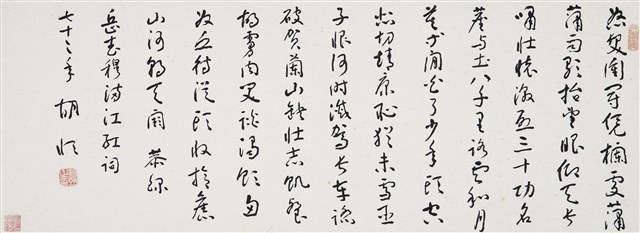 怒髮衝冠凭欄處瀟
瀟雨歇抬望眼仰天長
嘯壯懷激烈三十功名
塵與土八千里路雲和月
莫等閒白了少年頭空
悲切靖康恥猶未雪臣
子恨何時滅駕長車踏
破賀蘭山缺壯志飢餐
胡虜肉笑談渴飲匈
奴血待從頭收拾舊
山河朝天闕 恭錄
岳武穆滿江紅詞
七十三年 胡